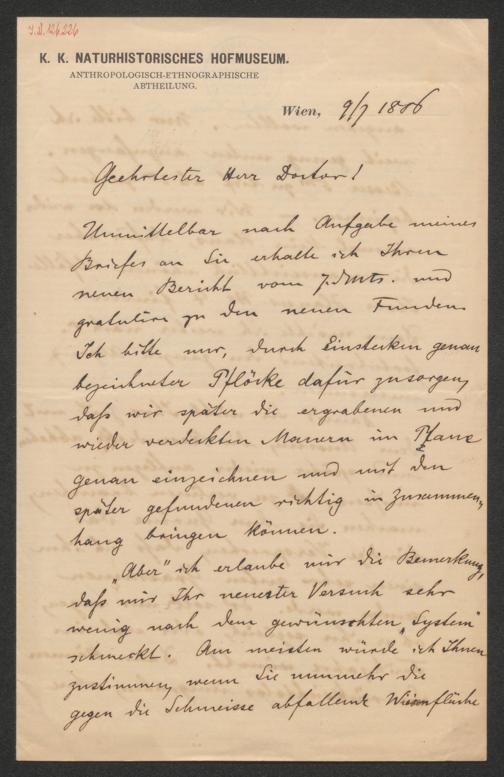 J.N. 126.226
K. K. NATURHISTORISCHES HOFMUSEUM.
ANTHROPOLOGISCH-ETHNOGRAPHISCHE
ABTHEILUNG.
Wien, 9/7 1886
Geehrtester Herr Doctor!
Unmittelbar nach Aufgabe meines
Briefes an Sie erhalte ich Ihren
neuen Bericht vom 7. d Mts. und
gratulire zu den neuen Funden.
Ich bitte nur, durch Einstecken genau
bezeichneter Pflöcke dafür zu sorgen,
daß wir später die ergrabenen und
wieder verdeckten Mauern im Plane
genau einzeichnen und mit den
später gefundenen richtig in Zusammen-
hang bringen können.
„Aber" ich erlaube mir die Bemerkung,
daß mir Ihr neuester Versuch sehr
wenig nach dem gewünschten „System"
schmeckt. Am meisten würde ich Ihnen
zustimmen, wenn Sie nunmehr die
gegen die Schmeisse abfallende Wiesenfläche